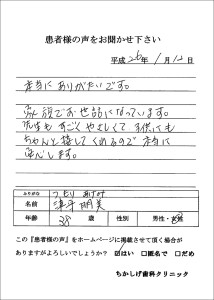 患者様の声をお聞かせ下さい
平成26年1月12日
本当にありがたいです。
家族でお世話になっています。
先生も すごく やさしくて 子供にも
ちゃんと接してくれるので 本当に
安心します。
ふりがな
名前
年齢 38 歳 性別 男性・女性
この『患者様の声』をホームページに掲載させて頂く場合が
ありますがよろしいでしょうか？ ☑はい □匿名で □だめ
ちかしげ歯科クリニック